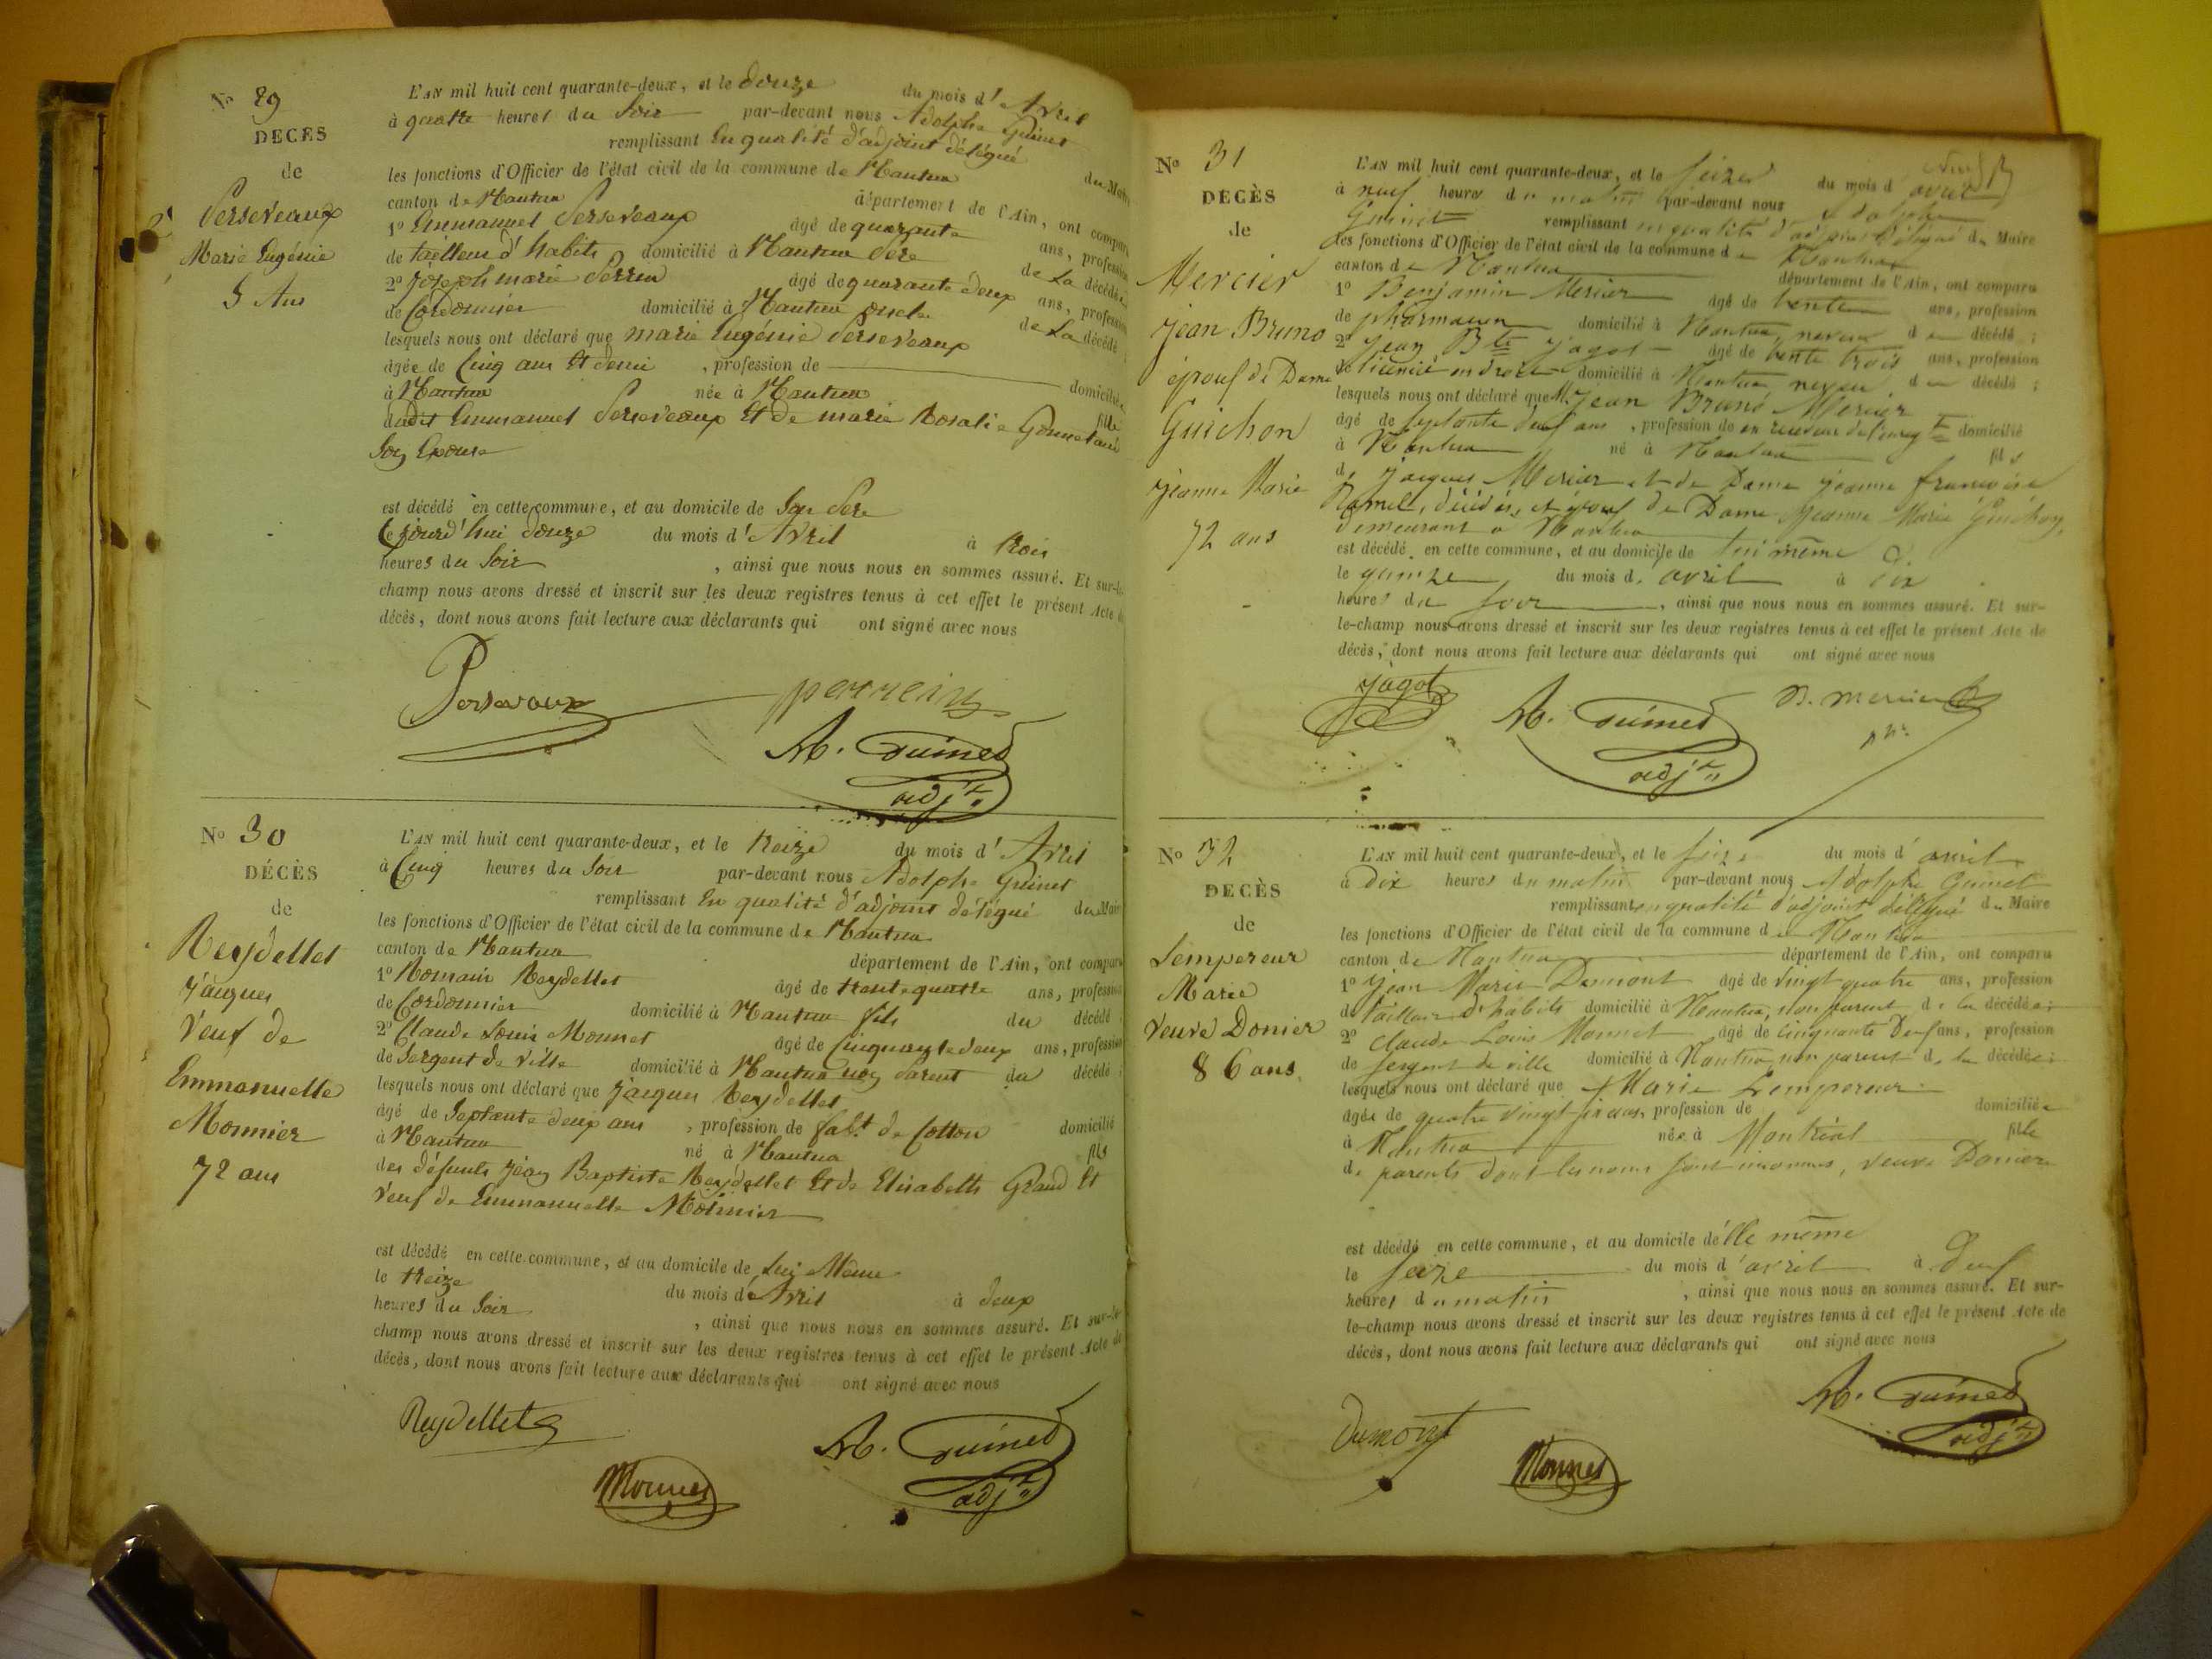 No 29
DECÈS
de
Perseveaux
Marie Eugénie
5 Ans
L'AN mil huit cent quarante-deux, et le douze du mois d'Avril
à quatre heures du Soir par-devant nous Adolphe Guinet
remplissant En qualité d'adjoint délégué du Maire
les fonctions d'Officier de l'état civil de la commune de Nantua
canton de Nantua département de l'Ain, ont comparu
1º Emmanuel Perseveaux âgé de quarante ans, profession
de tailleur d'habits domicilié à Nantua Père de La décédée
2º Joseph marie Perrin âgé de quarante deux ans, profession
de Cordonnier domicilié à Nantua oncle de La décédé ;
lesquels nous ont déclaré que marie Eugénie Perseveaux
âgée de Cinq ans Et demi , profession de domiciliée
à Nantua née à Nantua fille
dudit Emmanuel Perseveaux Et de marie Rosalie
Son Epouse
est décédé en cette commune, et au domicile de Son Père
Cejourd'hui douze du mois d'Avril à trois
heures du Soir , ainsi que nous nous en sommes assuré. Et sur-le-
champ nous avons dressé et inscrit sur les deux registres tenus à cet effet le présent Acte de
décès, dont nous avons fait lecture aux déclarants qui ont signé avec nous
Perseveaux perrein
A. Guinet
adjt
No 30
DÉCÈS
de
Reydellet
Jacques
Veuf de
Emmanuelle
Monnier
72 ans
L'AN mil huit cent quarante-deux, et le treize du mois d'Avril
à Cinq heures du Soir par-devant nous Adolphe Guinet
remplissant En qualité d'adjoint délégué du Maire
les fonctions d'Officier de l'état civil de la commune de Nantua
canton de Nantua département de l'Ain, ont comparu
1º Romain Reydellet âgé de trente quatre ans, profession
de Cordonnier domicilié à Nantua fils du décédé ;
2º Claude Louis Monnet âgé de Cinquante deux ans, profession
de Sergent de Ville domicilié à Nantua non parent du décédé ;
lesquels nous ont déclaré que Jacques Reydellet
âgé de Septante deux ans , profession de fabt. de Cotton domicilié
à Nantua né à Nantua fils
des défunts Jean Baptiste Reydellet Et de Elisabeth Grand Et
Veuf de Emmanuelle Monnier
est décédé en cette commune, et au domicile de Lui Même
le treize du mois d'Avril à deux
heures du Soir , ainsi que nous nous en sommes assuré. Et sur-le-
champ nous avons dressé et inscrit sur les deux registres tenus à cet effet le présent Acte de
décès, dont nous avons fait lecture aux déclarants qui ont signé avec nous
Reydellet
A. Guinet
adjt
Monnet
No 31
DECÈS
de
Mercier
Jean Bruno
époux de Dame
Guichon
Jeanne Marie
72 ans
L'AN mil huit cent quarante-deux, et le seize du mois d avril
à neuf heures du matin par-devant nous Adolphe
Guinet remplissant en qualité d'adjoint délégué du Maire
les fonctions d'Officier de l'état civil de la commune de Nantua
canton de Nantua département de l'Ain, ont comparu
1º Benjamin Mercier âgé de trente ans, profession
de pharmacien domicilié à Nantua, neveu du décédé ;
2º Jean Bte Jagot âgé de trente trois ans, profession
de licencié en droit domicilié à Nantua neveu du décédé ;
lesquels nous ont déclaré que M. Jean Bruno Mercier
âgé de septante deux ans , profession de ex receveur de l'enregt domicilié
à Nantua né à Nantua fils
de Jacques Mercier et de Dame Jeanne française
décédés, et époux de Dame Jeanne Marie Guichon,
demeurant à Nantua
est décédé en cette commune, et au domicile de lui même
le quinze du mois d. avril à Dix
heures du soir , ainsi que nous nous en sommes assuré. Et sur-
le-champ nous avons dressé et inscrit sur les deux registres tenus à cet effet le présent Acte de
décès, dont nous avons fait lecture aux déclarants qui ont signé avec nous
Jagot A. Guinet B. Mercier
adjt
No 32
DECÈS
de
Lempereur
Marie
Veuve Donier
86 ans
L'AN mil huit cent quarante-deux, et le seize du mois d'avril
à dix heures du matin par-devant nous Adolphe Guinet
remplissant en qualité d'adjoint délégué du Maire
les fonctions d'Officier de l'état civil de la commune de Nantua
canton de Nantua département de l'Ain, ont comparu
1º Jean Marie Dumont âgé de vingt quatre ans, profession
de tailleur d'habits domicilié à Nantua, non parent de la décédée ;
2º Claude Louis Monnet âgé de cinquante deux ans, profession
de sergent de ville domicilié à Nantua non parent de la décédée ;
lesquels nous ont déclaré que Marie Lempereur
âgée de quatre vingt six ans, profession de domiciliée
à Nantua née à Montréal fille
de parents dont les noms sont inconnus, veuve Donier
est décédé en cette commune, et au domicile d'elle même
le seize du mois d'avril à deux
heures du matin , ainsi que nous nous en sommes assuré. Et sur-
le-champ nous avons dressé et inscrit sur les deux registres tenus à cet effet le présent Acte de
décès, dont nous avons fait lecture aux déclarants qui ont signé avec nous
A. Guinet
adjt
Dumont
Monnet